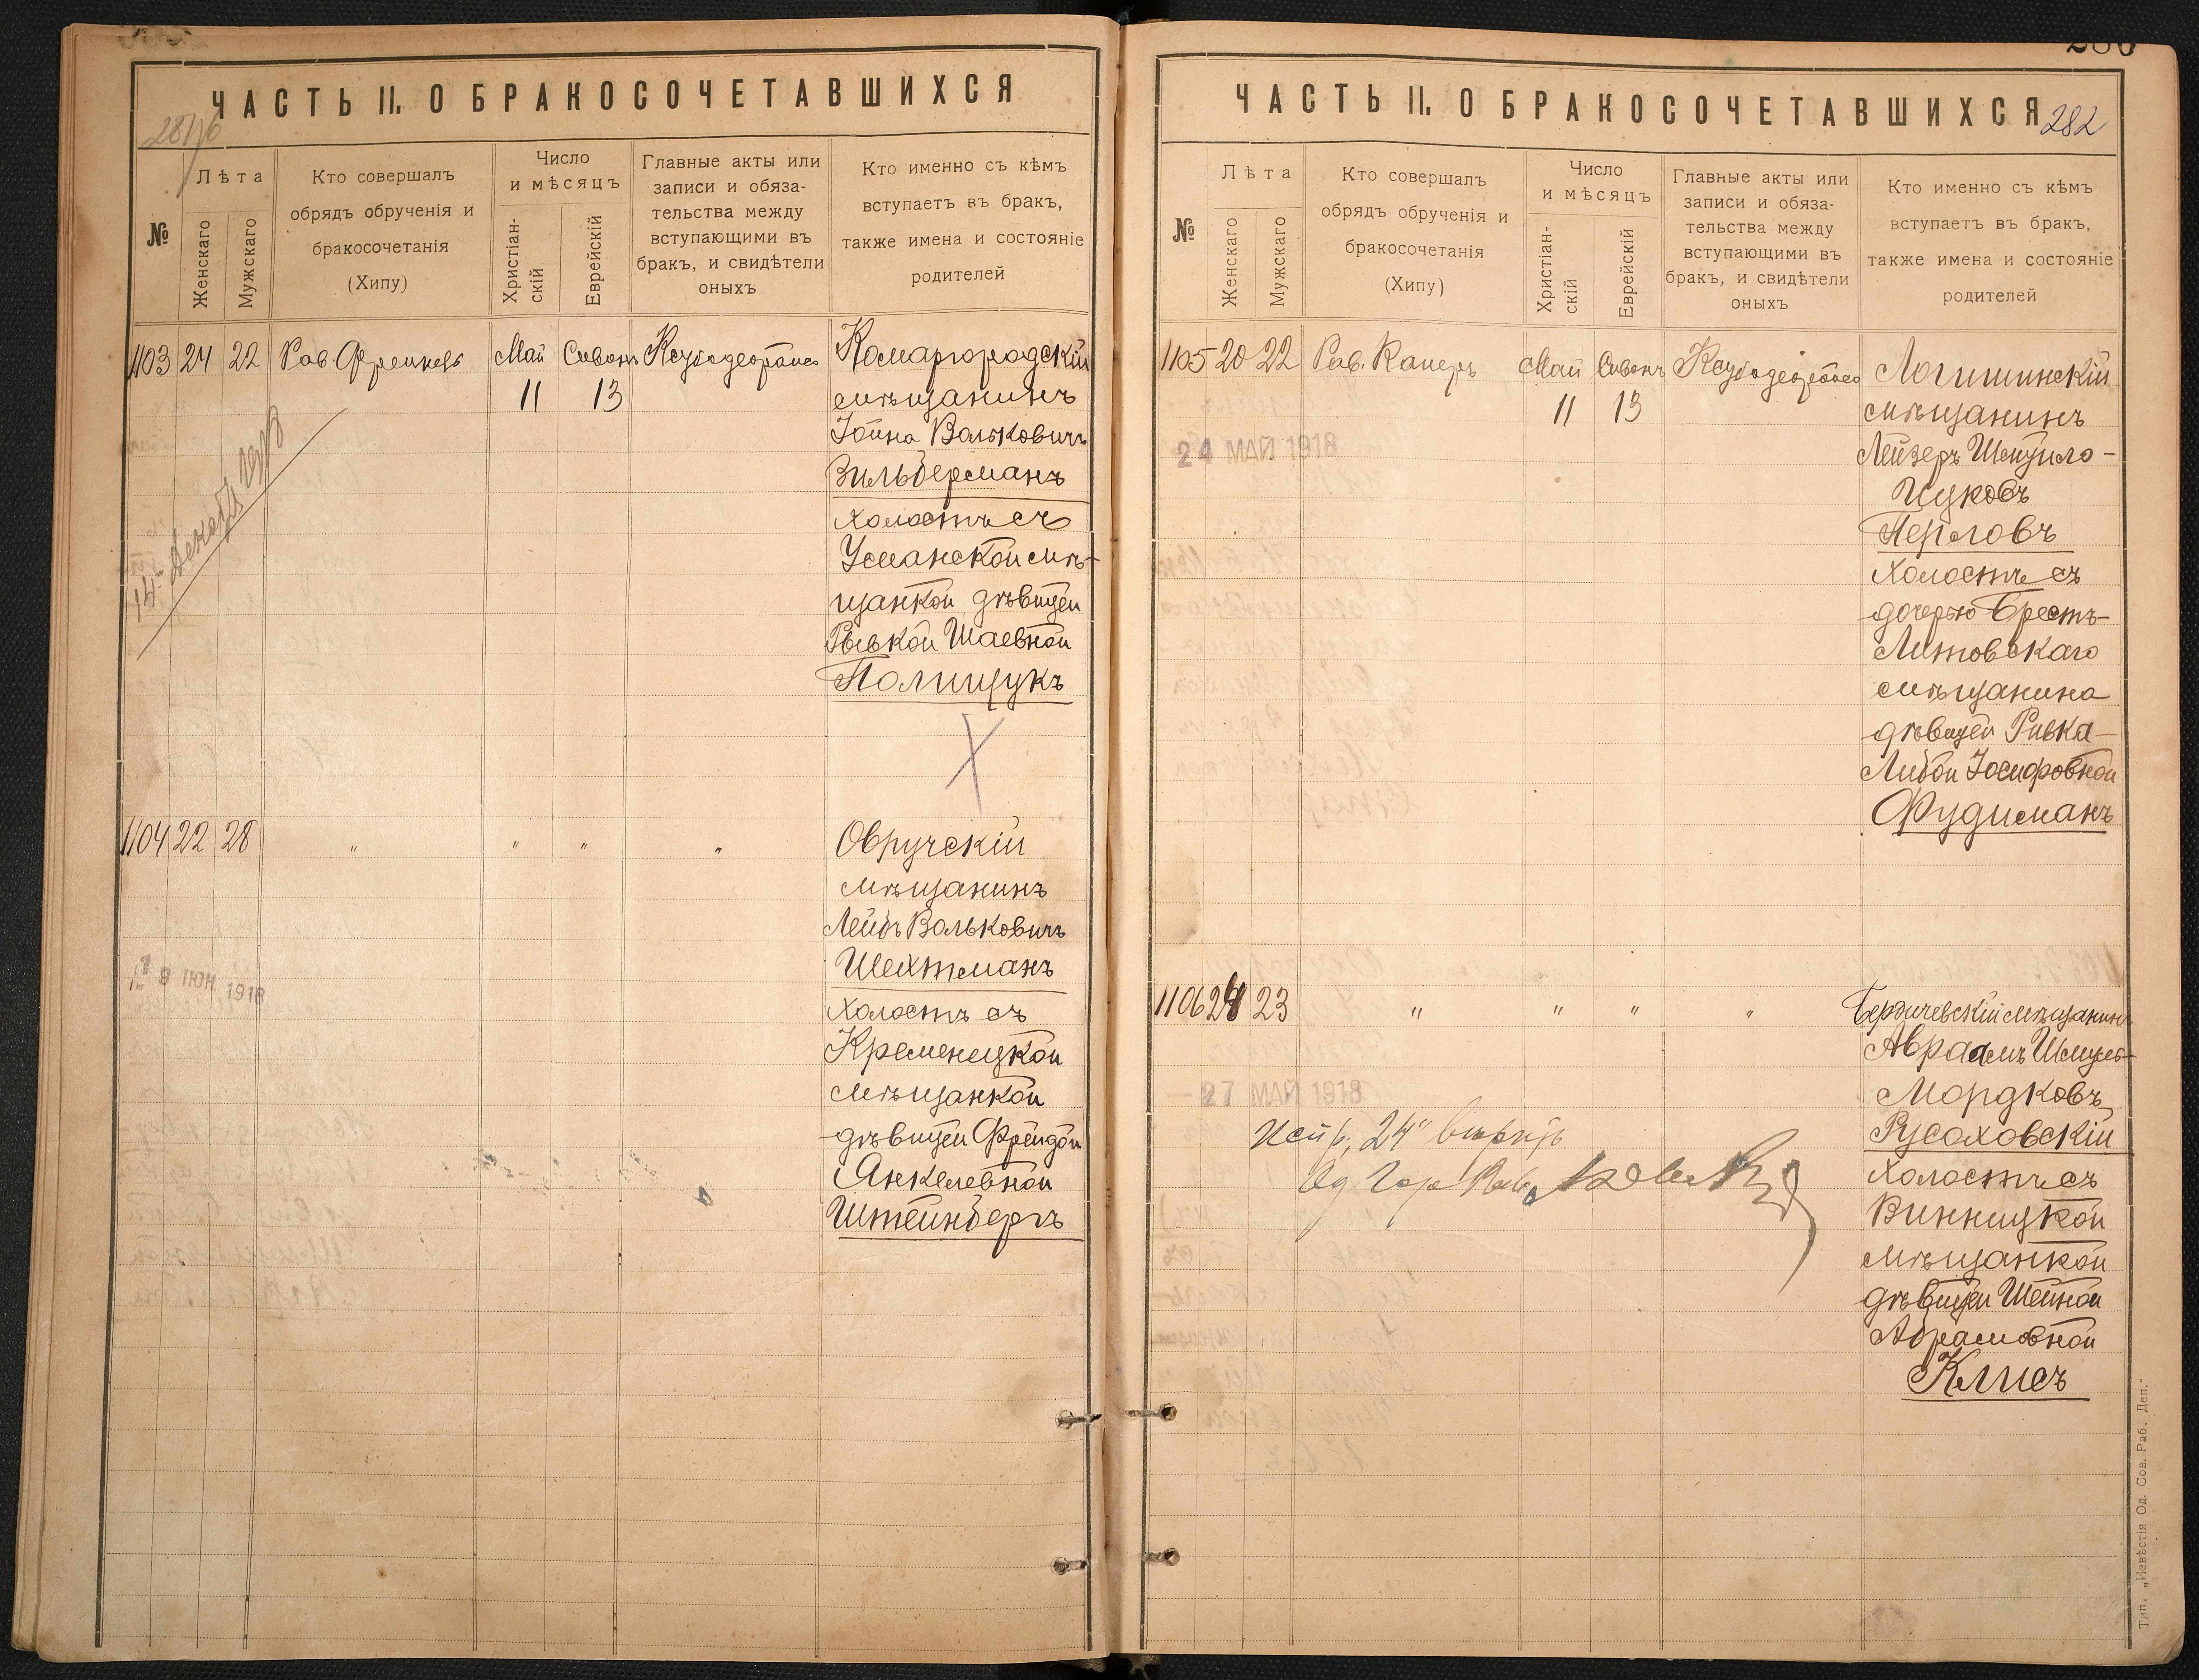 ЧАСТЬ II. О БРАКОСОЧЕТАВШИХСЯ
№
Лѣта
Женскаго
Мужскаго
Кто совершалъ
обрядъ обрученія и
бракосочетанія
(Хипу)
Число
и мѣсяцъ
Христіан-
скій
Еврейскій
Главные акты или
записи и обяза-
тельства между
вступающими въ
бракъ, и свидѣтели
оныхъ
Кто именно съ кѣмъ
вступаетъ въ бракъ,
также имена и состояніе
родителей
1103 24 22 Рав. Френкель Май Сивонъ
11 13
Комаргородскій
мѣщанинъ
Іойна Вольковичъ
Зильберманъ
холостъ съ
Уманской мѣ-
щанкой дѣвицей
Рывкой Шаевной
Полищукъ
1104 22 28 " " " "
Овручскій
мѣщанинъ
Лейбъ Вольковичъ
Шехтманъ
холостъ съ
Кременецкой
мѣщанкой
дѣвицей Фрейдой
Янкелевной
Штейнбергъ
ИЮН 1918
ЧАСТЬ II. О БРАКОСОЧЕТАВШИХСЯ
282
№
Лѣта
Женскаго
Мужскаго
Кто совершалъ
обрядъ обрученія и
бракосочетанія
(Хипу)
Число
и мѣсяцъ
Христіан-
скій
Еврейскій
Главные акты или
записи и обяза-
тельства между
вступающими въ
бракъ, и свидѣтели
оныхъ
Кто именно съ кѣмъ
вступаетъ въ бракъ,
также имена и состояніе
родителей
1105 20 22 Рав. Каперъ Май Сивонъ
11 13
24 МАЙ 1918
Логишинскій
мѣщанинъ
Лейзеръ Шмуйло-
Ицковъ
Перловъ
холостъ съ
дочерью Брестъ-
Литовскаго
мѣщанина
дѣвицей Ривка-
Либой Іосифовной
Фудиманъ
1106 24 23 " " " "
27 МАЙ 1918
Бердичевскій мѣщанинъ
Авраамъ Шмуль-
Мордковъ
Русаховскій
холостъ съ
Винницкой
мѣщанкой
дѣвицей Шейной
Абрамовной
Клисъ
Испр. "24" вѣрить
Тип. „Извѣстія Од. Сов. Раб. Деп."